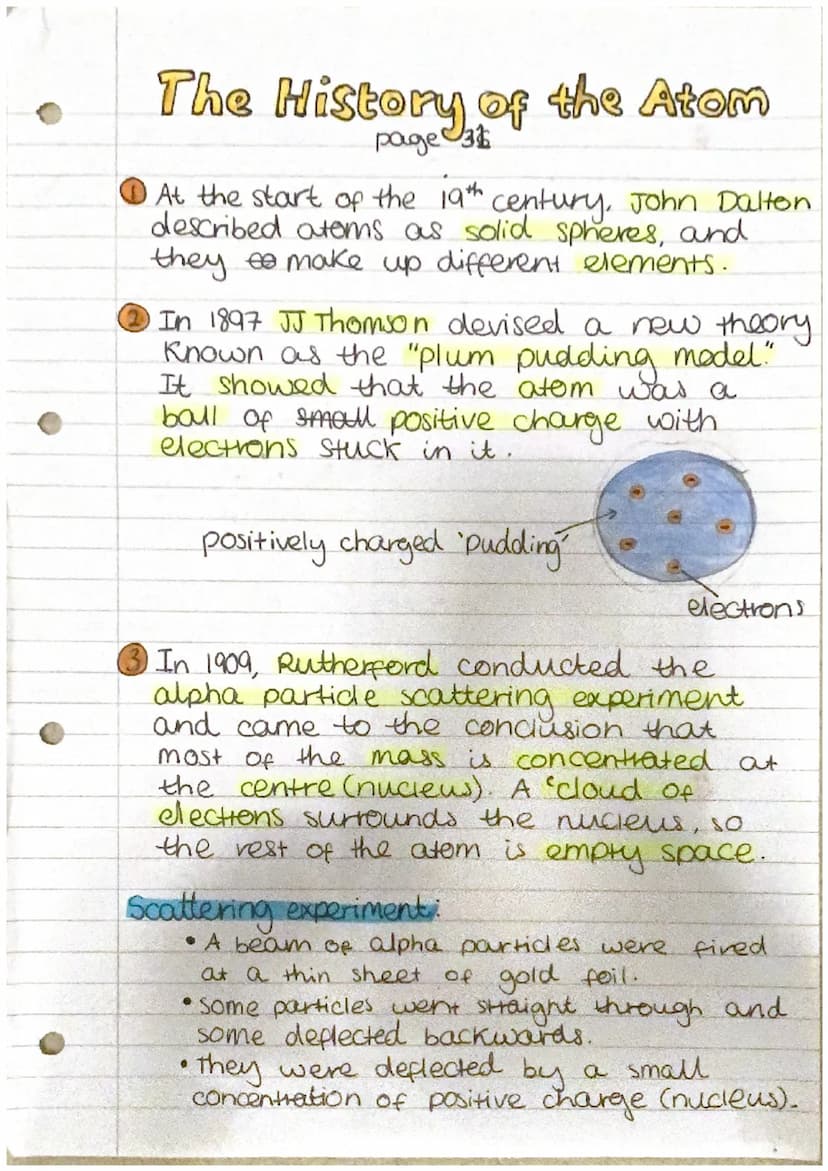 The History of the Atom
page 31
① At the start of the 19th century, John Dalton
described atoms as solid spheres, and
they make up different elements.
② In 1897 JJ Thomson devised a new theory
known as the "plum pudding model."
It showed that the atom was a
ball of small positive charge with
electrons stuck in it.
positively charged 'pudding'
electrons
③ In 1909, Rutherford conducted the
alpha particle scattering experiment
and came to the conclusion that
most of the mass is concentrated at
the centre (nucleus). A 'cloud of
electrons surrounds the nucleus, so
the rest of the atom is empty space.
Scattering experiment:
• A beam of alpha particles were fired
at a thin sheet of gold foil.
• Some particles went straight through and
some deflected backwards.
• They were deflected by a small
concentration of positive charge (nucleus).